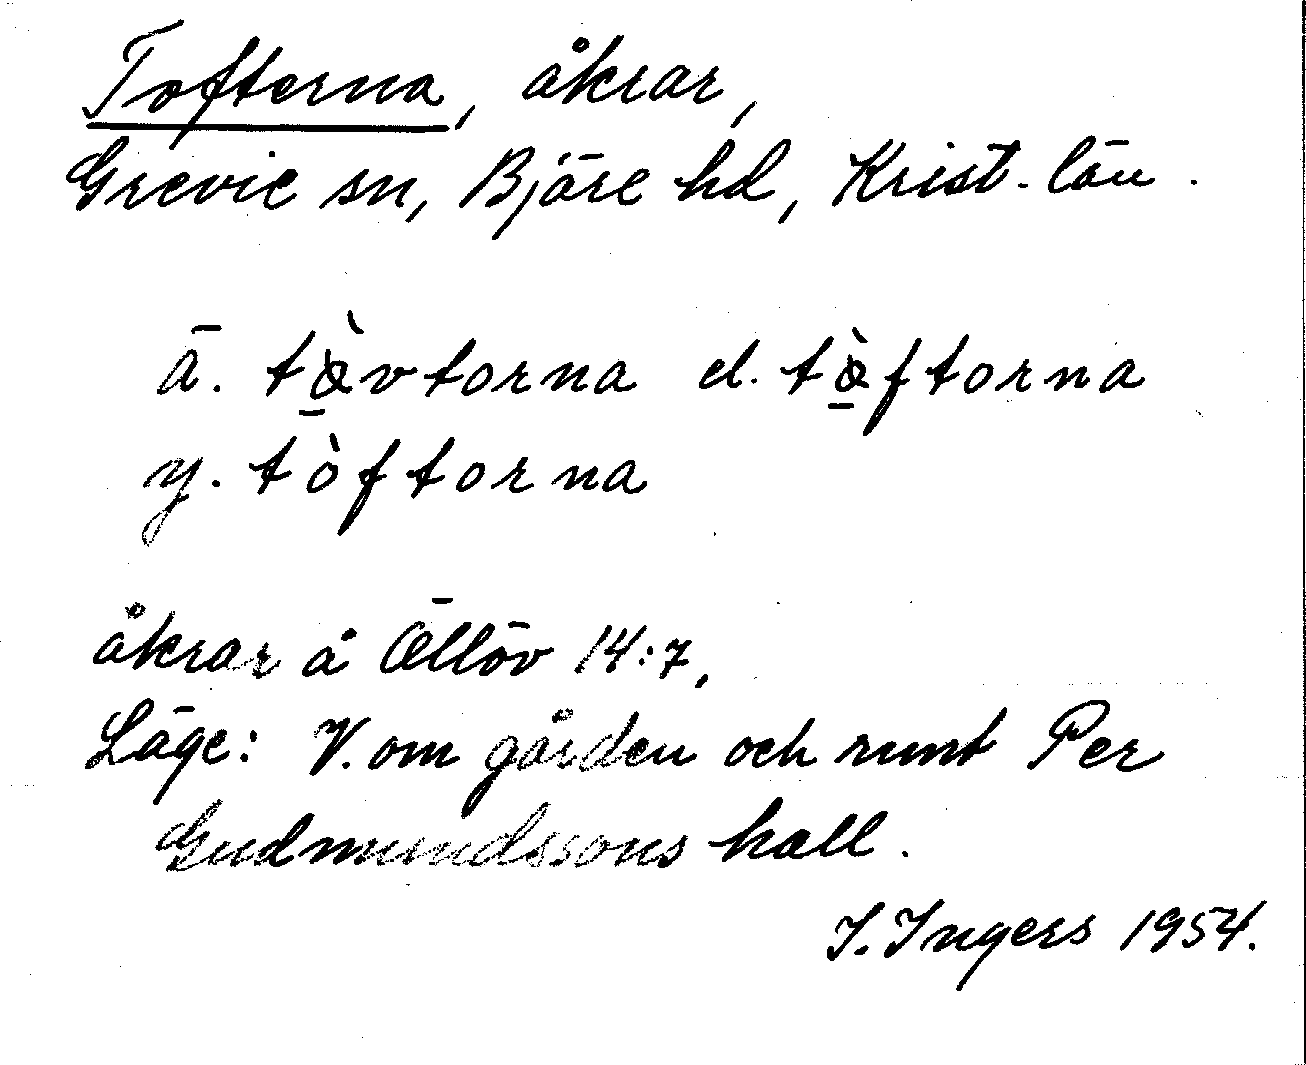 Tofterna, åkrar,
Grevie sn, Bjäre hd, Krist. län.
ä. tòvtorna el. tòftorna
y. tòftorna
åkrar å Öllöv 14:7.
Läge: V. om gården och runt Per
Gudmundssons hall.
I. Ingers 1954.